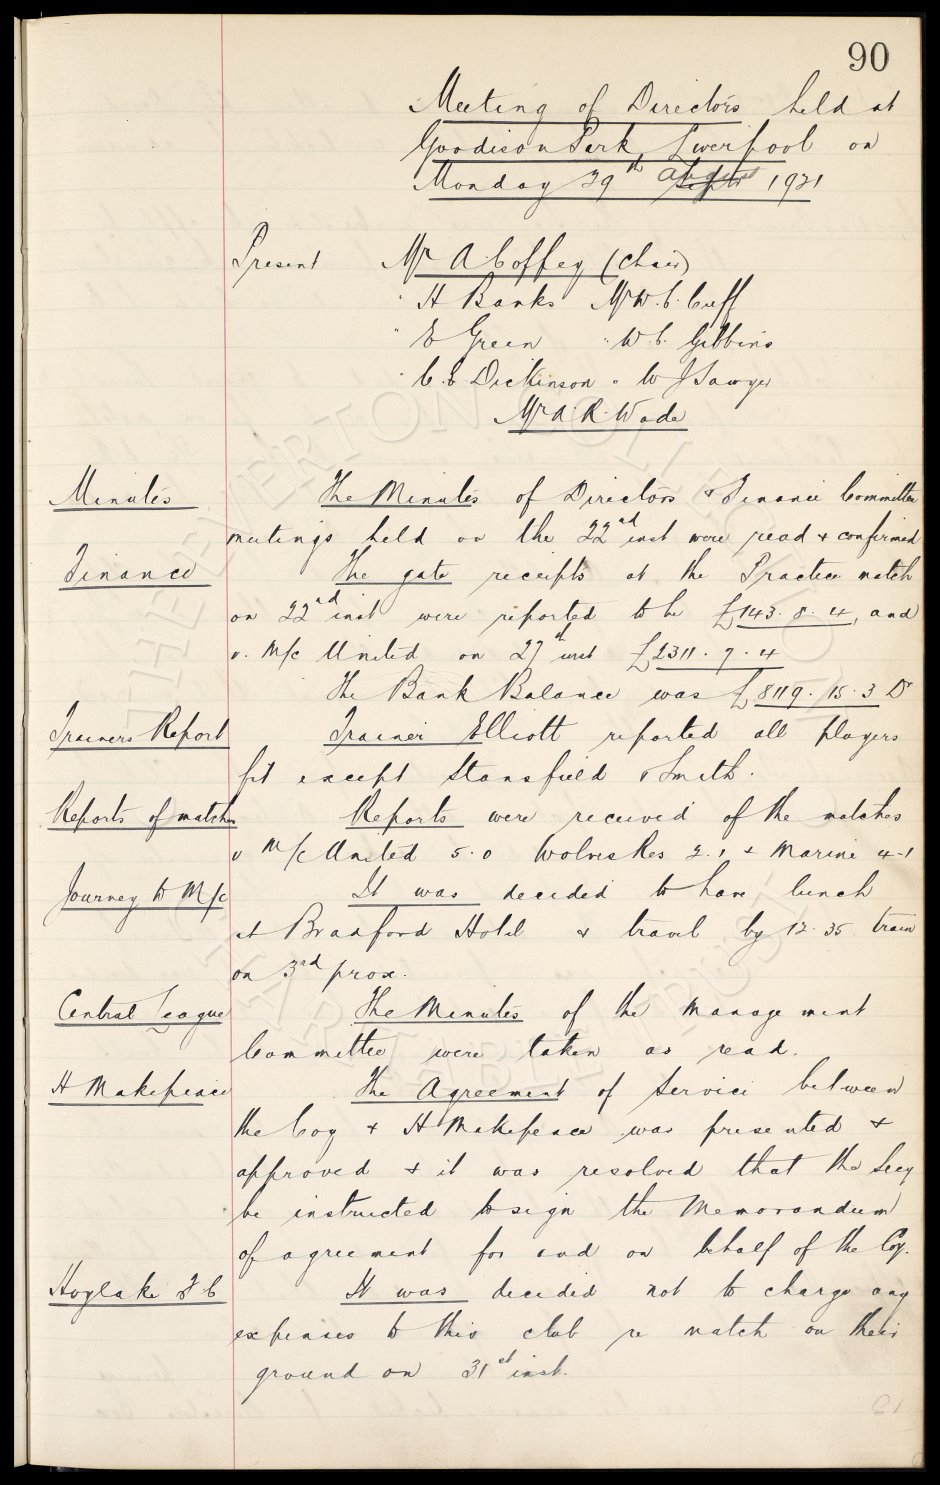 90
Meeting of Directors held at
Goodison Park, Liverpool on
Monday 29th Septr August 1921
Present Mr A. Coffey (Chair)
" H Banks Mr W. C. Cuff
" E Green " W. C. Gibbins
" C. E Dickinson " W J Sawyer
Mr A. R. Wade
Minutes The Minutes of Directors & Finance Committee
meetings held on the 22nd inst were read & confirmed
Finance The gate receipts at the Practice match
on 22nd inst were reported to be £143. 8. 4, and
v. M/c United on 27th inst £2311. 7. 4
The Bank Balance was £8119. 15. 3 Dr
Trainers Report Trainer Elliott reported all players
fit except Stansfield & Smith.
Reports of matches Reports were received of the matches
v M/c United 5. 0 Wolves Res 2. 1 & Marine 4-1
Journey to M/c It was decided to have lunch
at Bradford Hotel & travel by 12. 35 train
on 3rd prox.
Central League The Minutes of the Management
Committee were taken as read.
H Makepeace The Agreement of Service between
the Coy & H Makepeace was presented &
approved & it was resolved that the Secy
be instructed to sign the Memorandum
of agreement for and on behalf of the Coy.
Hoylake F C It was decided not to charge any
expenses to this club re match on their
ground on 31st inst.
THE EVERTON COLLECTION
CHARITABLE TRUST